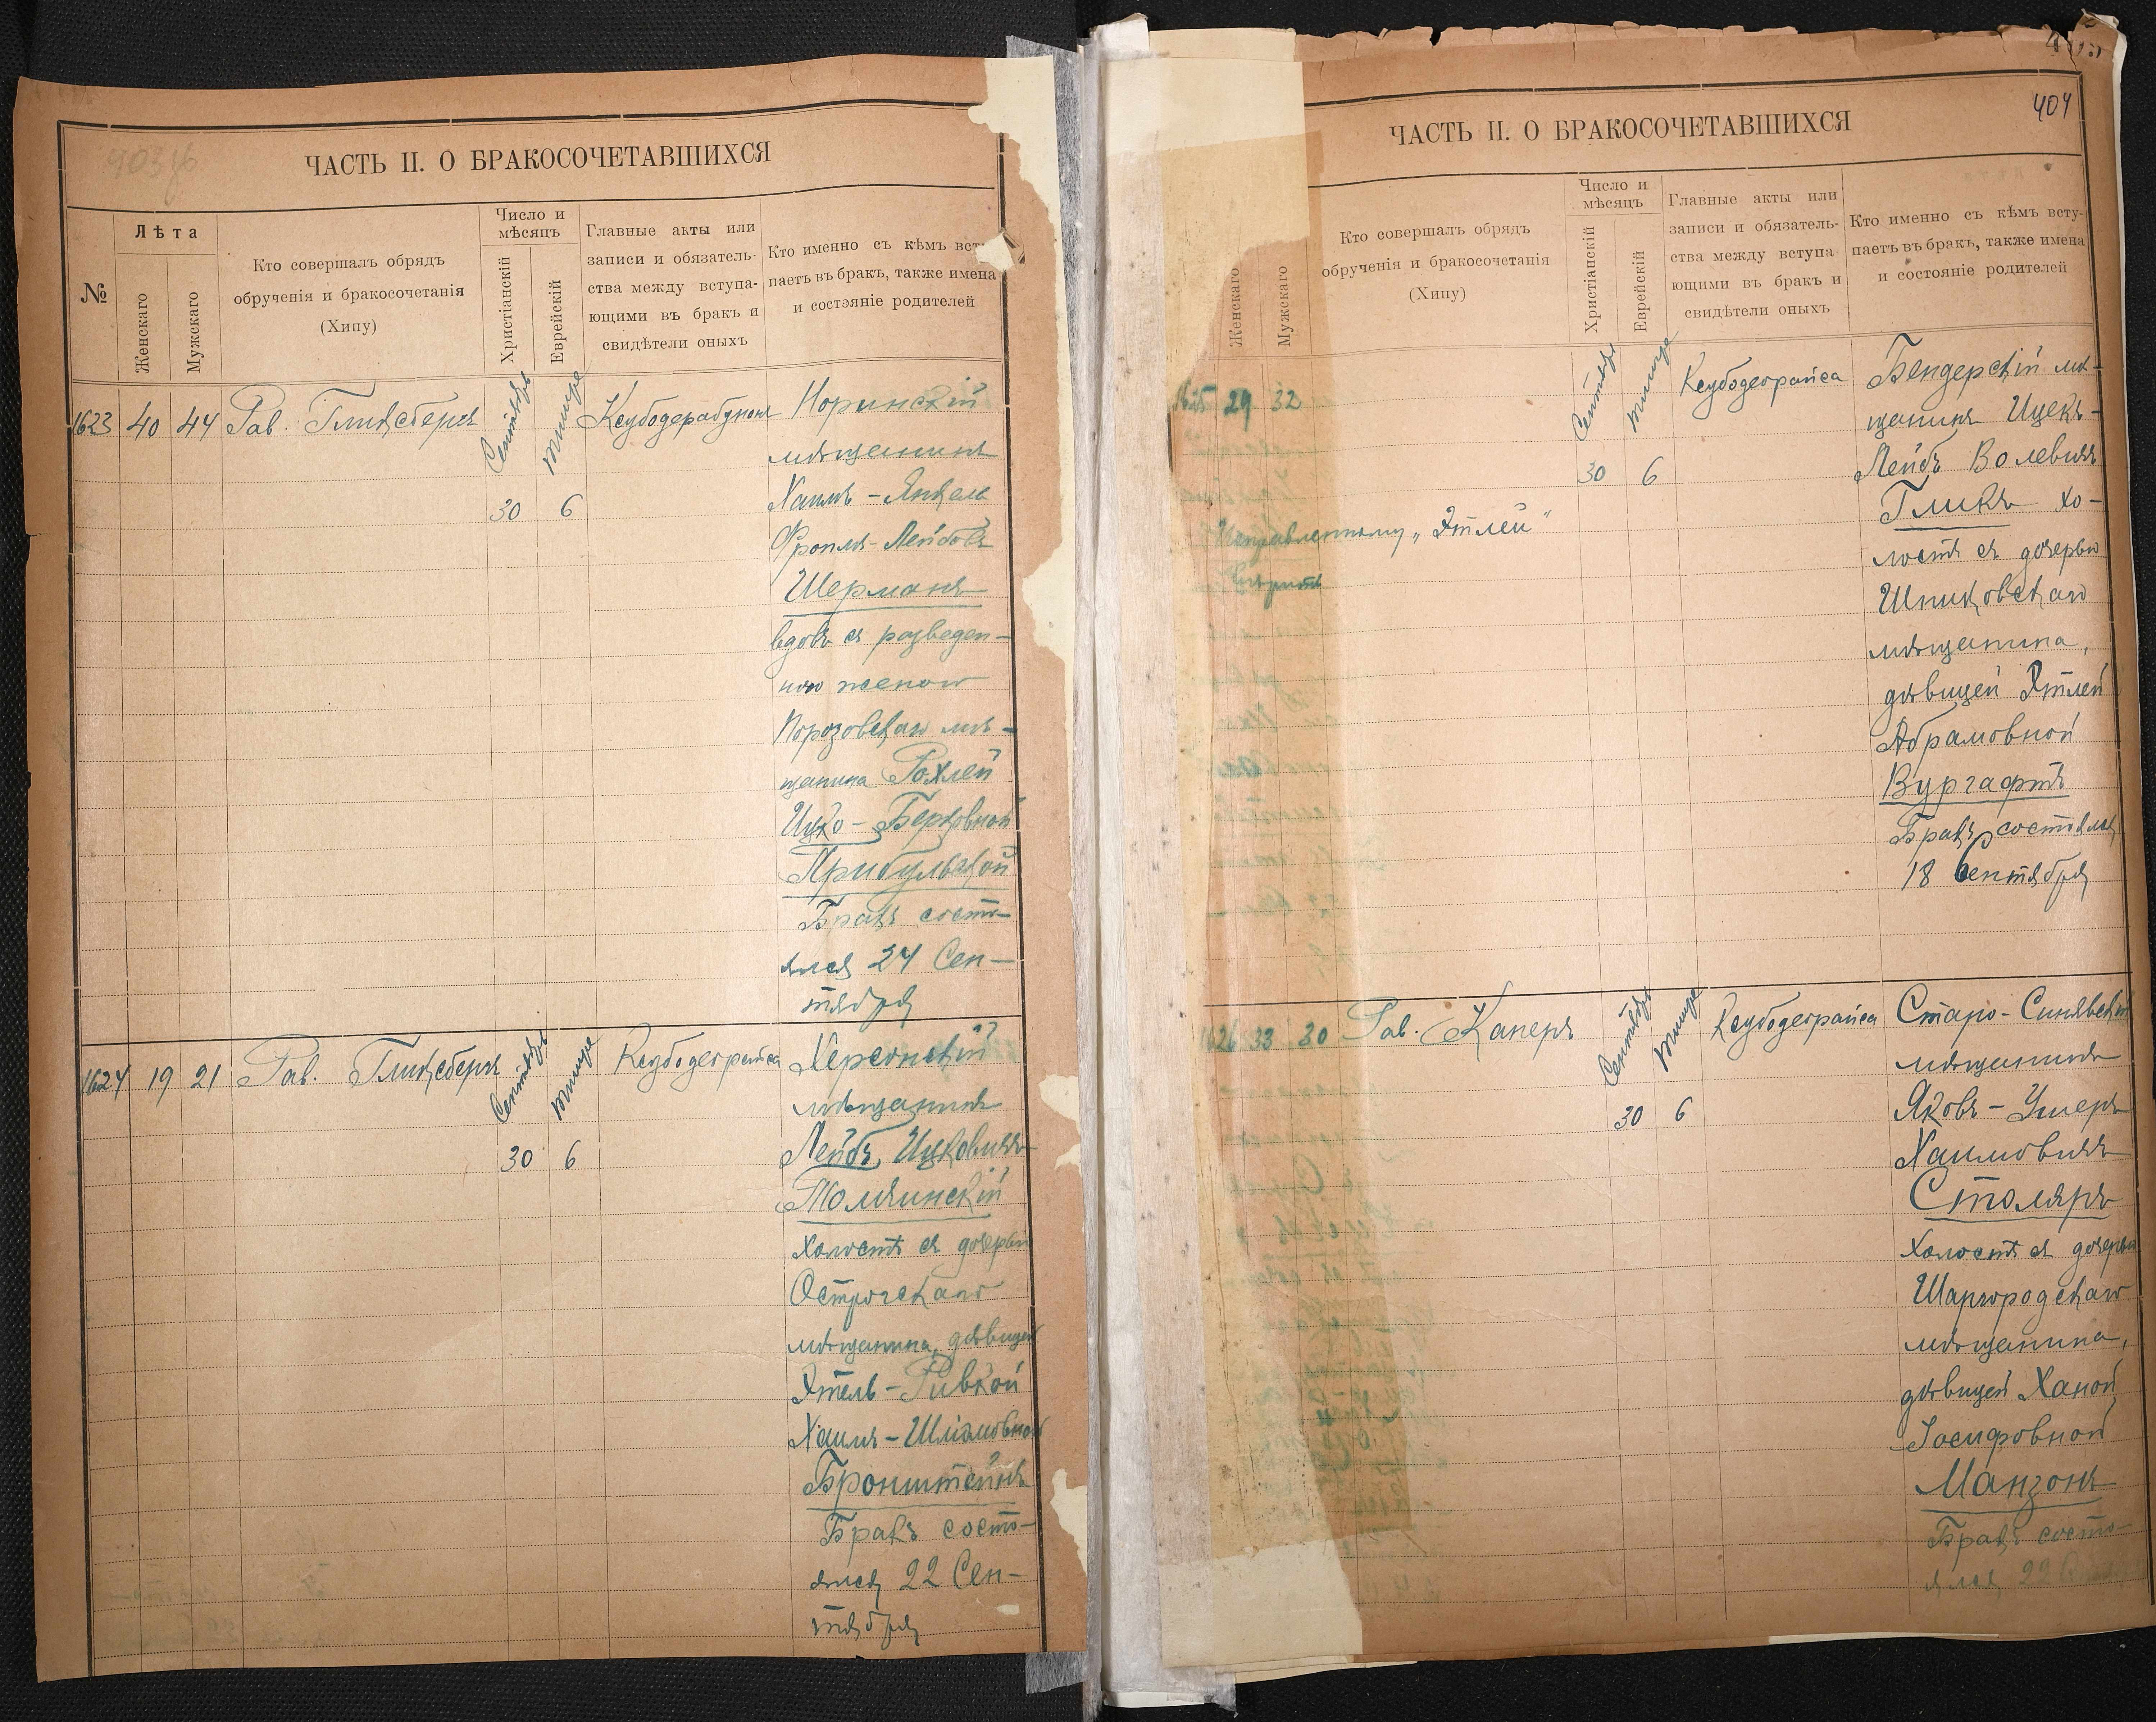 403 об
ЧАСТЬ II. О БРАКОСОЧЕТАВШИХСЯ
№
Лѣта
Женскаго
Мужскаго
Кто совершалъ обрядъ
обрученія и бракосочетанія
(Хипу)
Число и
мѣсяцъ
Христіанскій
Еврейскій
Главные акты или
записи и обязатель-
ства между вступа-
ющими въ бракъ и
свидѣтели оныхъ
Кто именно съ кѣмъ всту
паетъ въ бракъ, также имена
и состояніе родителей
1623 40 44 Рав. Глинсбергъ
Сентябрь Тишре
30 6
Норинскій
мѣщанинъ
Хаимъ-Янкель
Фроимъ-Лейбовъ
Шерманъ
вдовъ съ разведен-
ною женою
Порозовскаго мѣ-
щанина Рохлей
Ицко-Берковной
Прибульской
Бракъ состо-
ялся 24 Сен-
тября
1624 19 21 Рав. Глинсбергъ
Сентябрь Тишре
30 6
Ксубодеорайса
Херсонскій
мѣщанинъ
Лейбъ Ицковичъ
Толчинскій
холостъ съ дочерью
Острогскаго
мѣщанина, дѣвицей
Этель-Ривкой
Хаимъ-Шліомовной
Бронштейнъ
Бракъ состо-
ялся 22 Сен-
тября
404
ЧАСТЬ II. О БРАКОСОЧЕТАВШИХСЯ
Женскаго
Мужскаго
Кто совершалъ обрядъ
обрученія и бракосочетанія
(Хипу)
Число и
мѣсяцъ
Христіанскій
Еврейскій
Главные акты или
записи и обязатель-
ства между вступа
ющими въ бракъ и
свидѣтели оныхъ
Кто именно съ кѣмъ всту-
паетъ въ бракъ, также имена
и состояніе родителей
1625 29 32
Сентябрь Тишре
30 6
Ксубодеорайса
Исправленному „Этлей“
вѣрить
Бендерскій мѣ-
щанинъ Ицекъ-
Лейбъ Волевичъ
Гликъ хо-
лостъ съ дочерью
Шпиковскаго
мѣщанина,
дѣвицей Этлей
Абрамовной
Вургафтъ
Бракъ состоялся
18 Сентября
1626 33 30 Рав. Каперъ
Сентябрь Тишре
30 6
Ксубодеорайса
Старо-Синявскій
мѣщанинъ
Яковъ-Ушеръ
Хаимовичъ
Столяръ
холостъ съ дочерью
Шаргородскаго
мѣщанина,
дѣвицей Ханой
Іосифовной
Манзонъ
Бракъ состо-
ялся 22